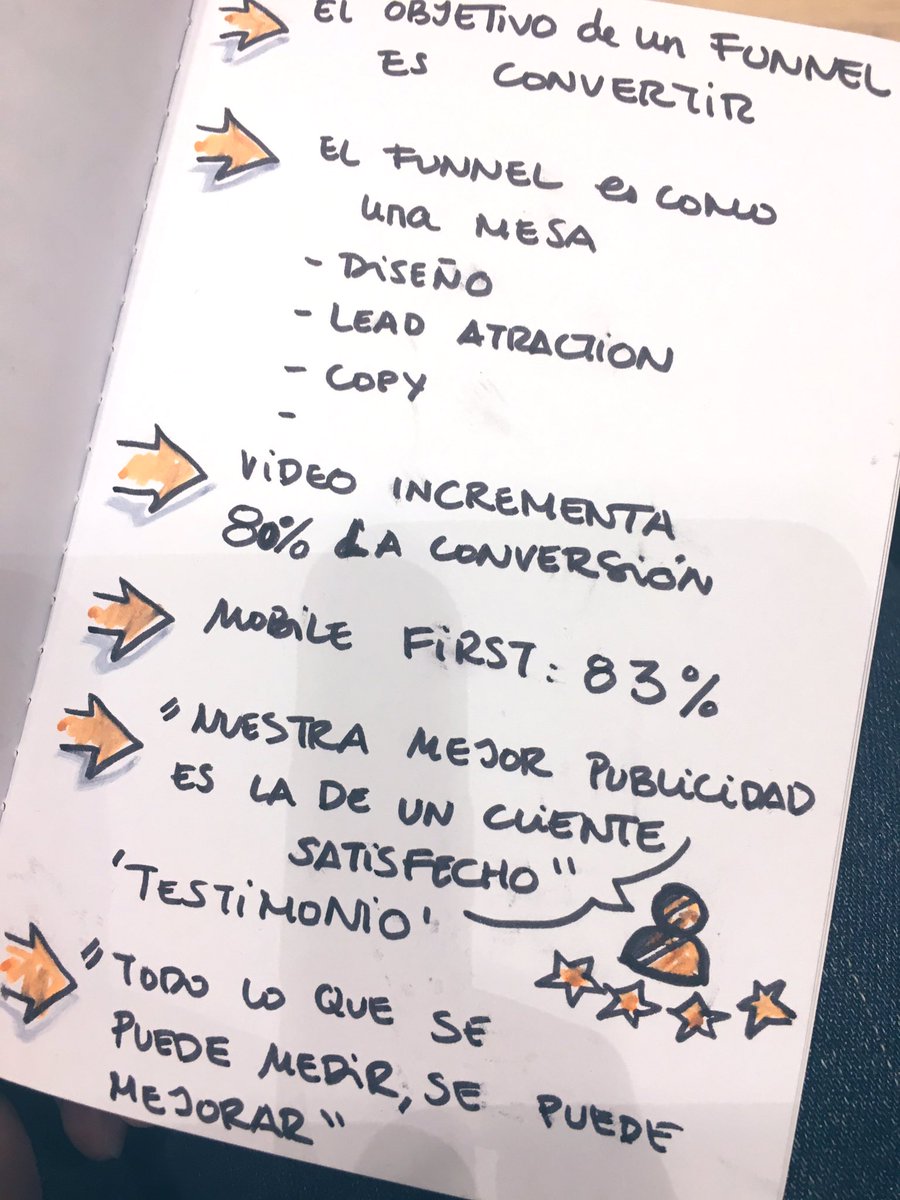 EL OBJETIVO de un FUNNEL
ES CONVERTIR
EL FUNNEL es como
una MESA
- DISEÑO
- LEAD ATRACTION
- COPY
-
VIDEO INCREMENTA
80% LA CONVERSIÓN
MOBILE FIRST: 83%
"NUESTRA MEJOR PUBLICIDAD
ES LA DE UN CLIENTE
SATISFECHO"
'TESTIMONIO'
"TODO LO QUE SE
PUEDE MEDIR, SE PUEDE
MEJORAR"